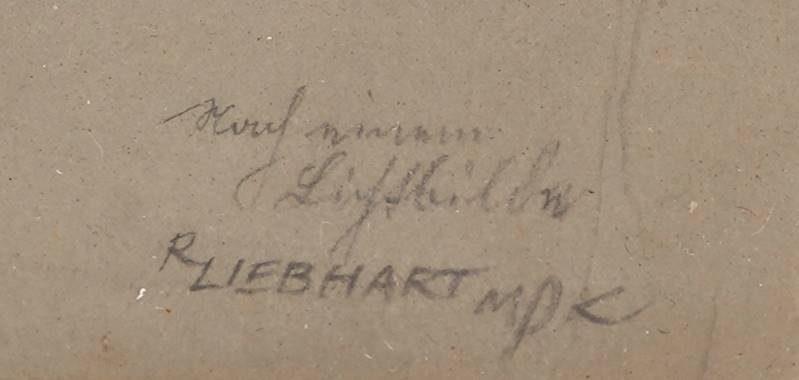 Nach einem
Lichtbilde
R LIEBHART